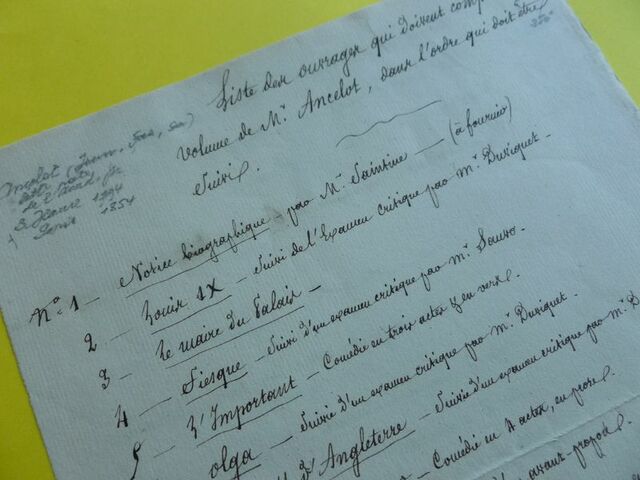 Liste des ouvrages qui doivent comp
volume de Mr. Ancelot, dans l'ordre qui doit être
suivi.
Ancelot (
de l'Acad. fr.
1794
1854
N° 1 — Notice biographique — par Mr. Saintine — (à fournir)
2 — Louis IX — Suivi de l'Examen critique par Mr. Duviquet.
3 — Le maire du Palais —
4 — Fiesque — Suivi d'un examen critique par Mr.
5 — L'Important — Comédie en trois actes & en vers.
Olga — Suivie d'un examen critique par Mr. Duviquet.
d'Angleterre — Suivie d'un examen critique par Mr. D
Comédie en 4 actes, en prose
avant-propos.